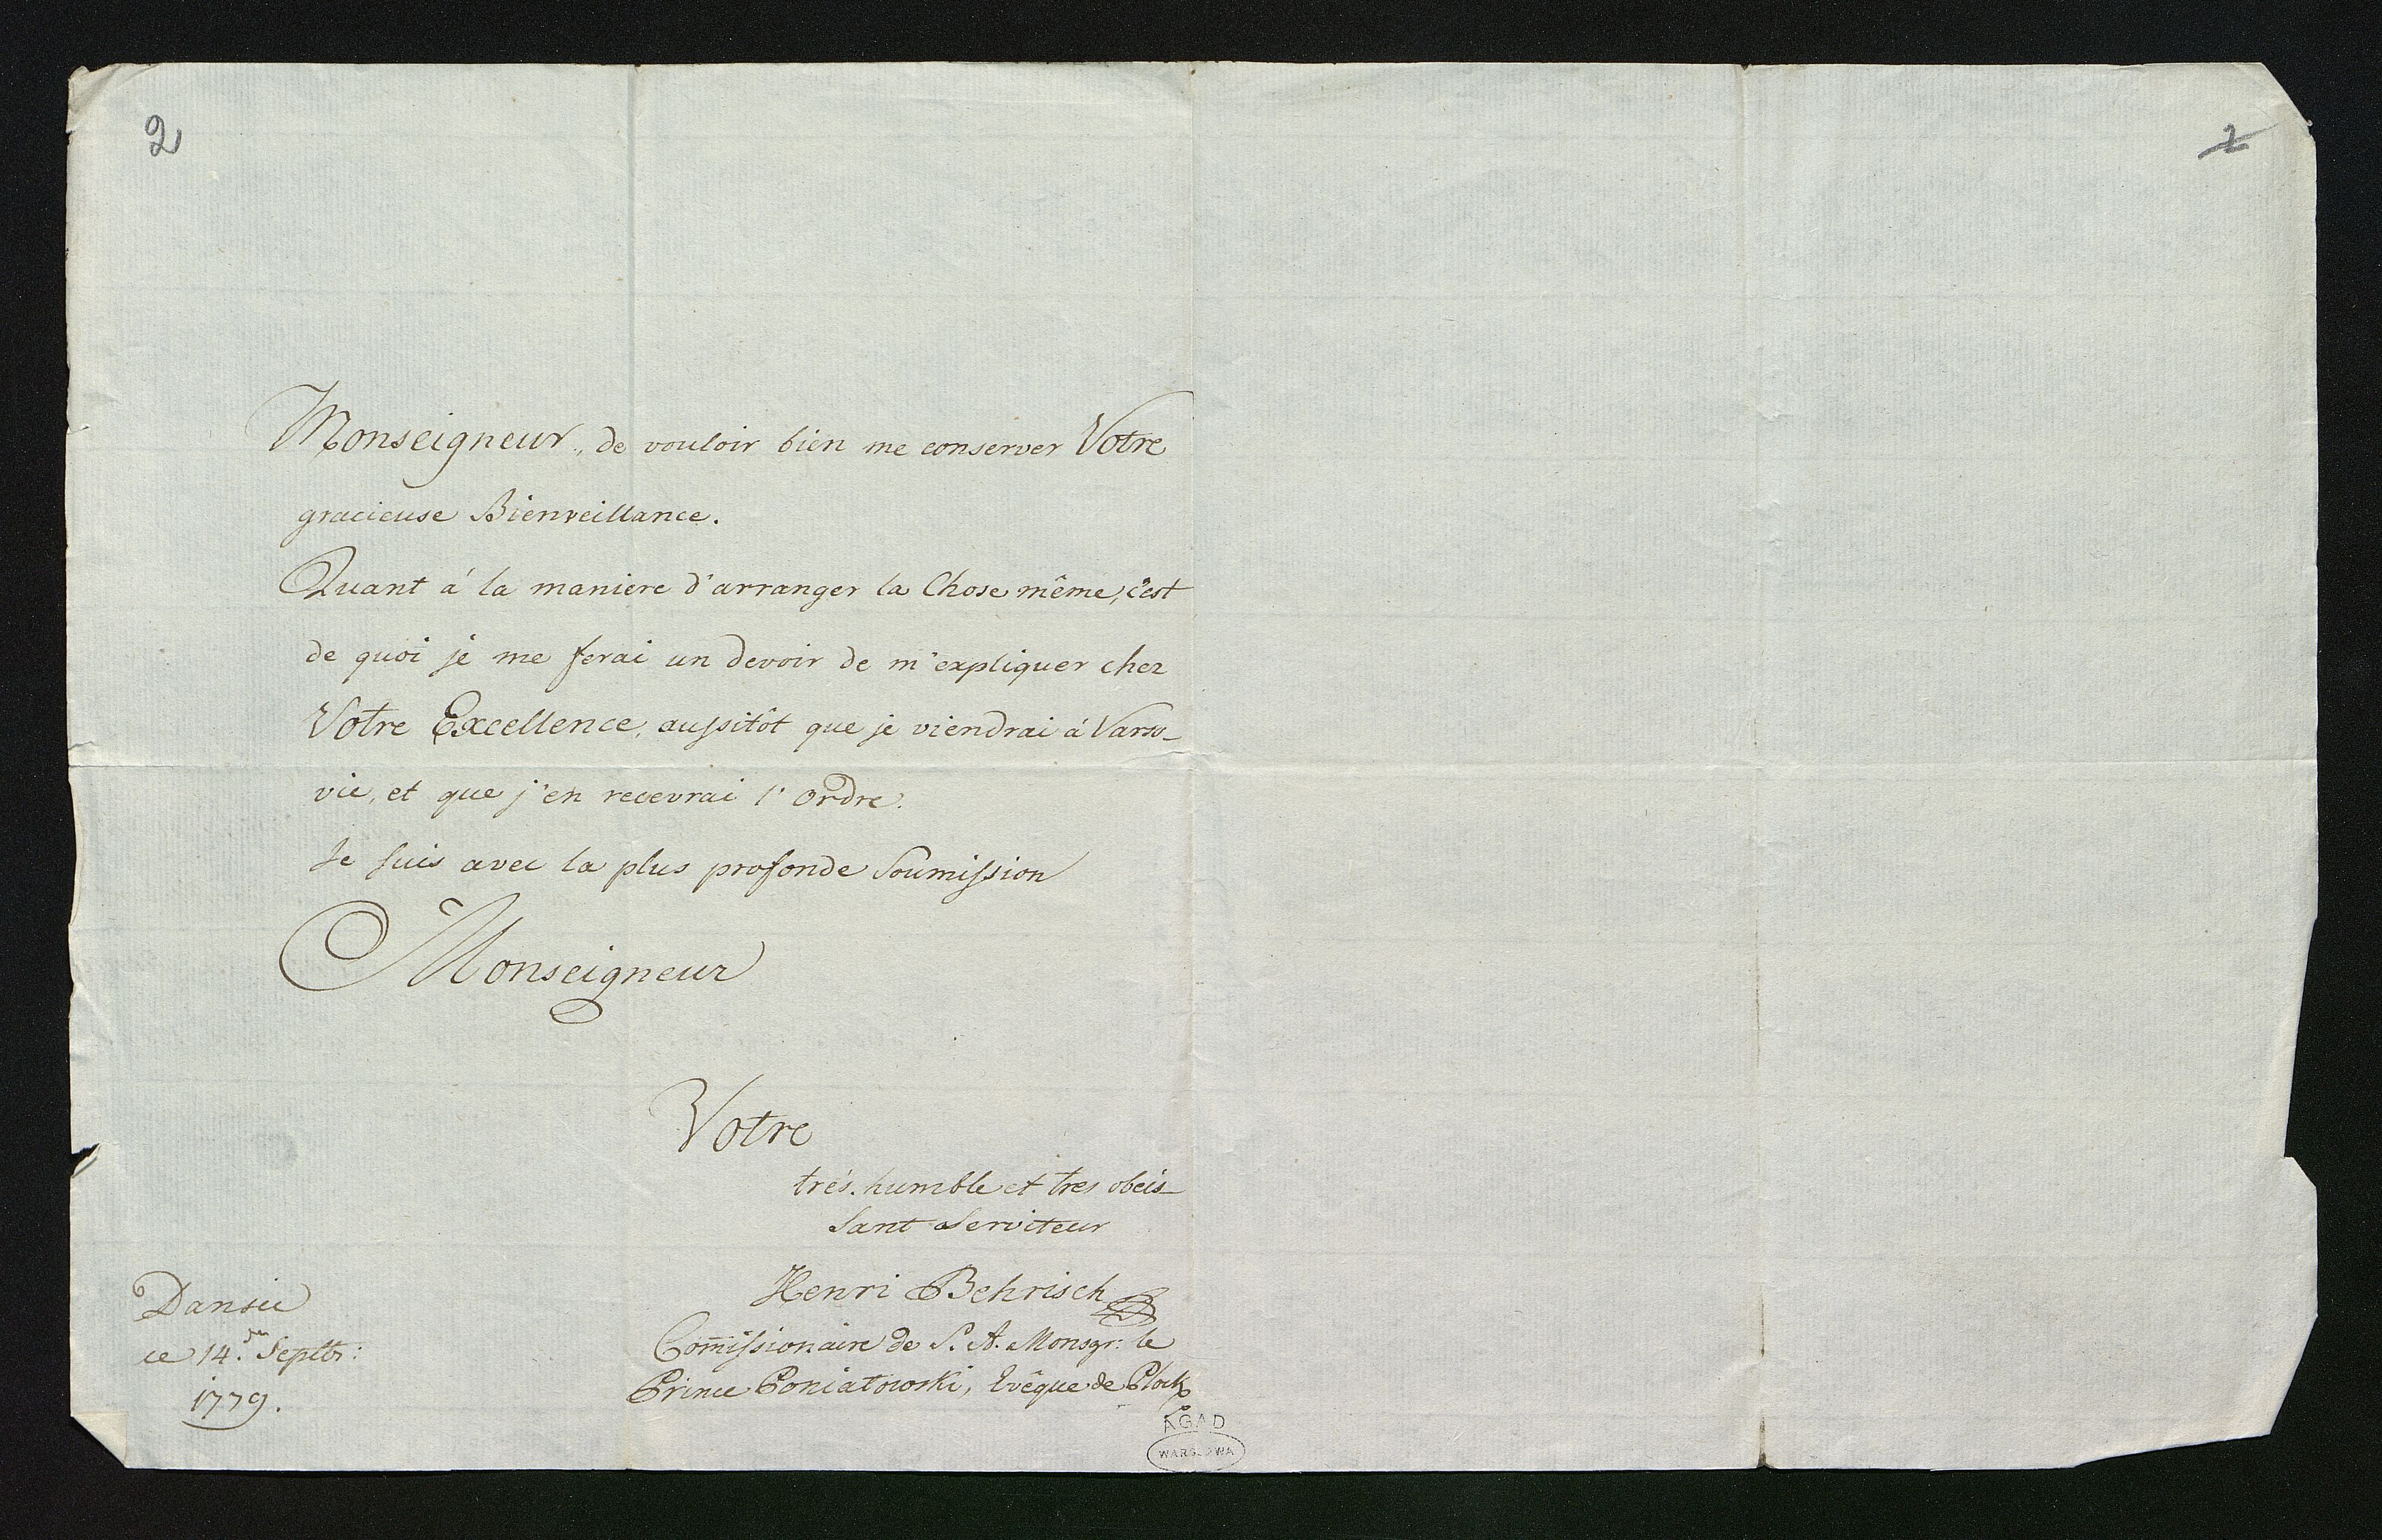 2
Monseigneur, de vouloir bien me conserver Votre
gracieuse Bienveillance.
Quant á la maniere d'arranger la Chose même, c'est
de quoi je me ferai un devoir de m'expliquer chez
Votre Excellence, aussitôt que je viendrai á Varso-
vie, et que j'en recevrai l'ordre.
Je suis avec la plus profonde Soumission
Monseigneur
Votre
trés humble et tres obeis-
sant Serviteur
Henri Behrisch
Com̄issionaire de S. A. Monsgr: le
Prince Poniatowski, Evêque de Plock
Dansic
ce 14. Septbr:
1779.
AGAD
WARSZAWA